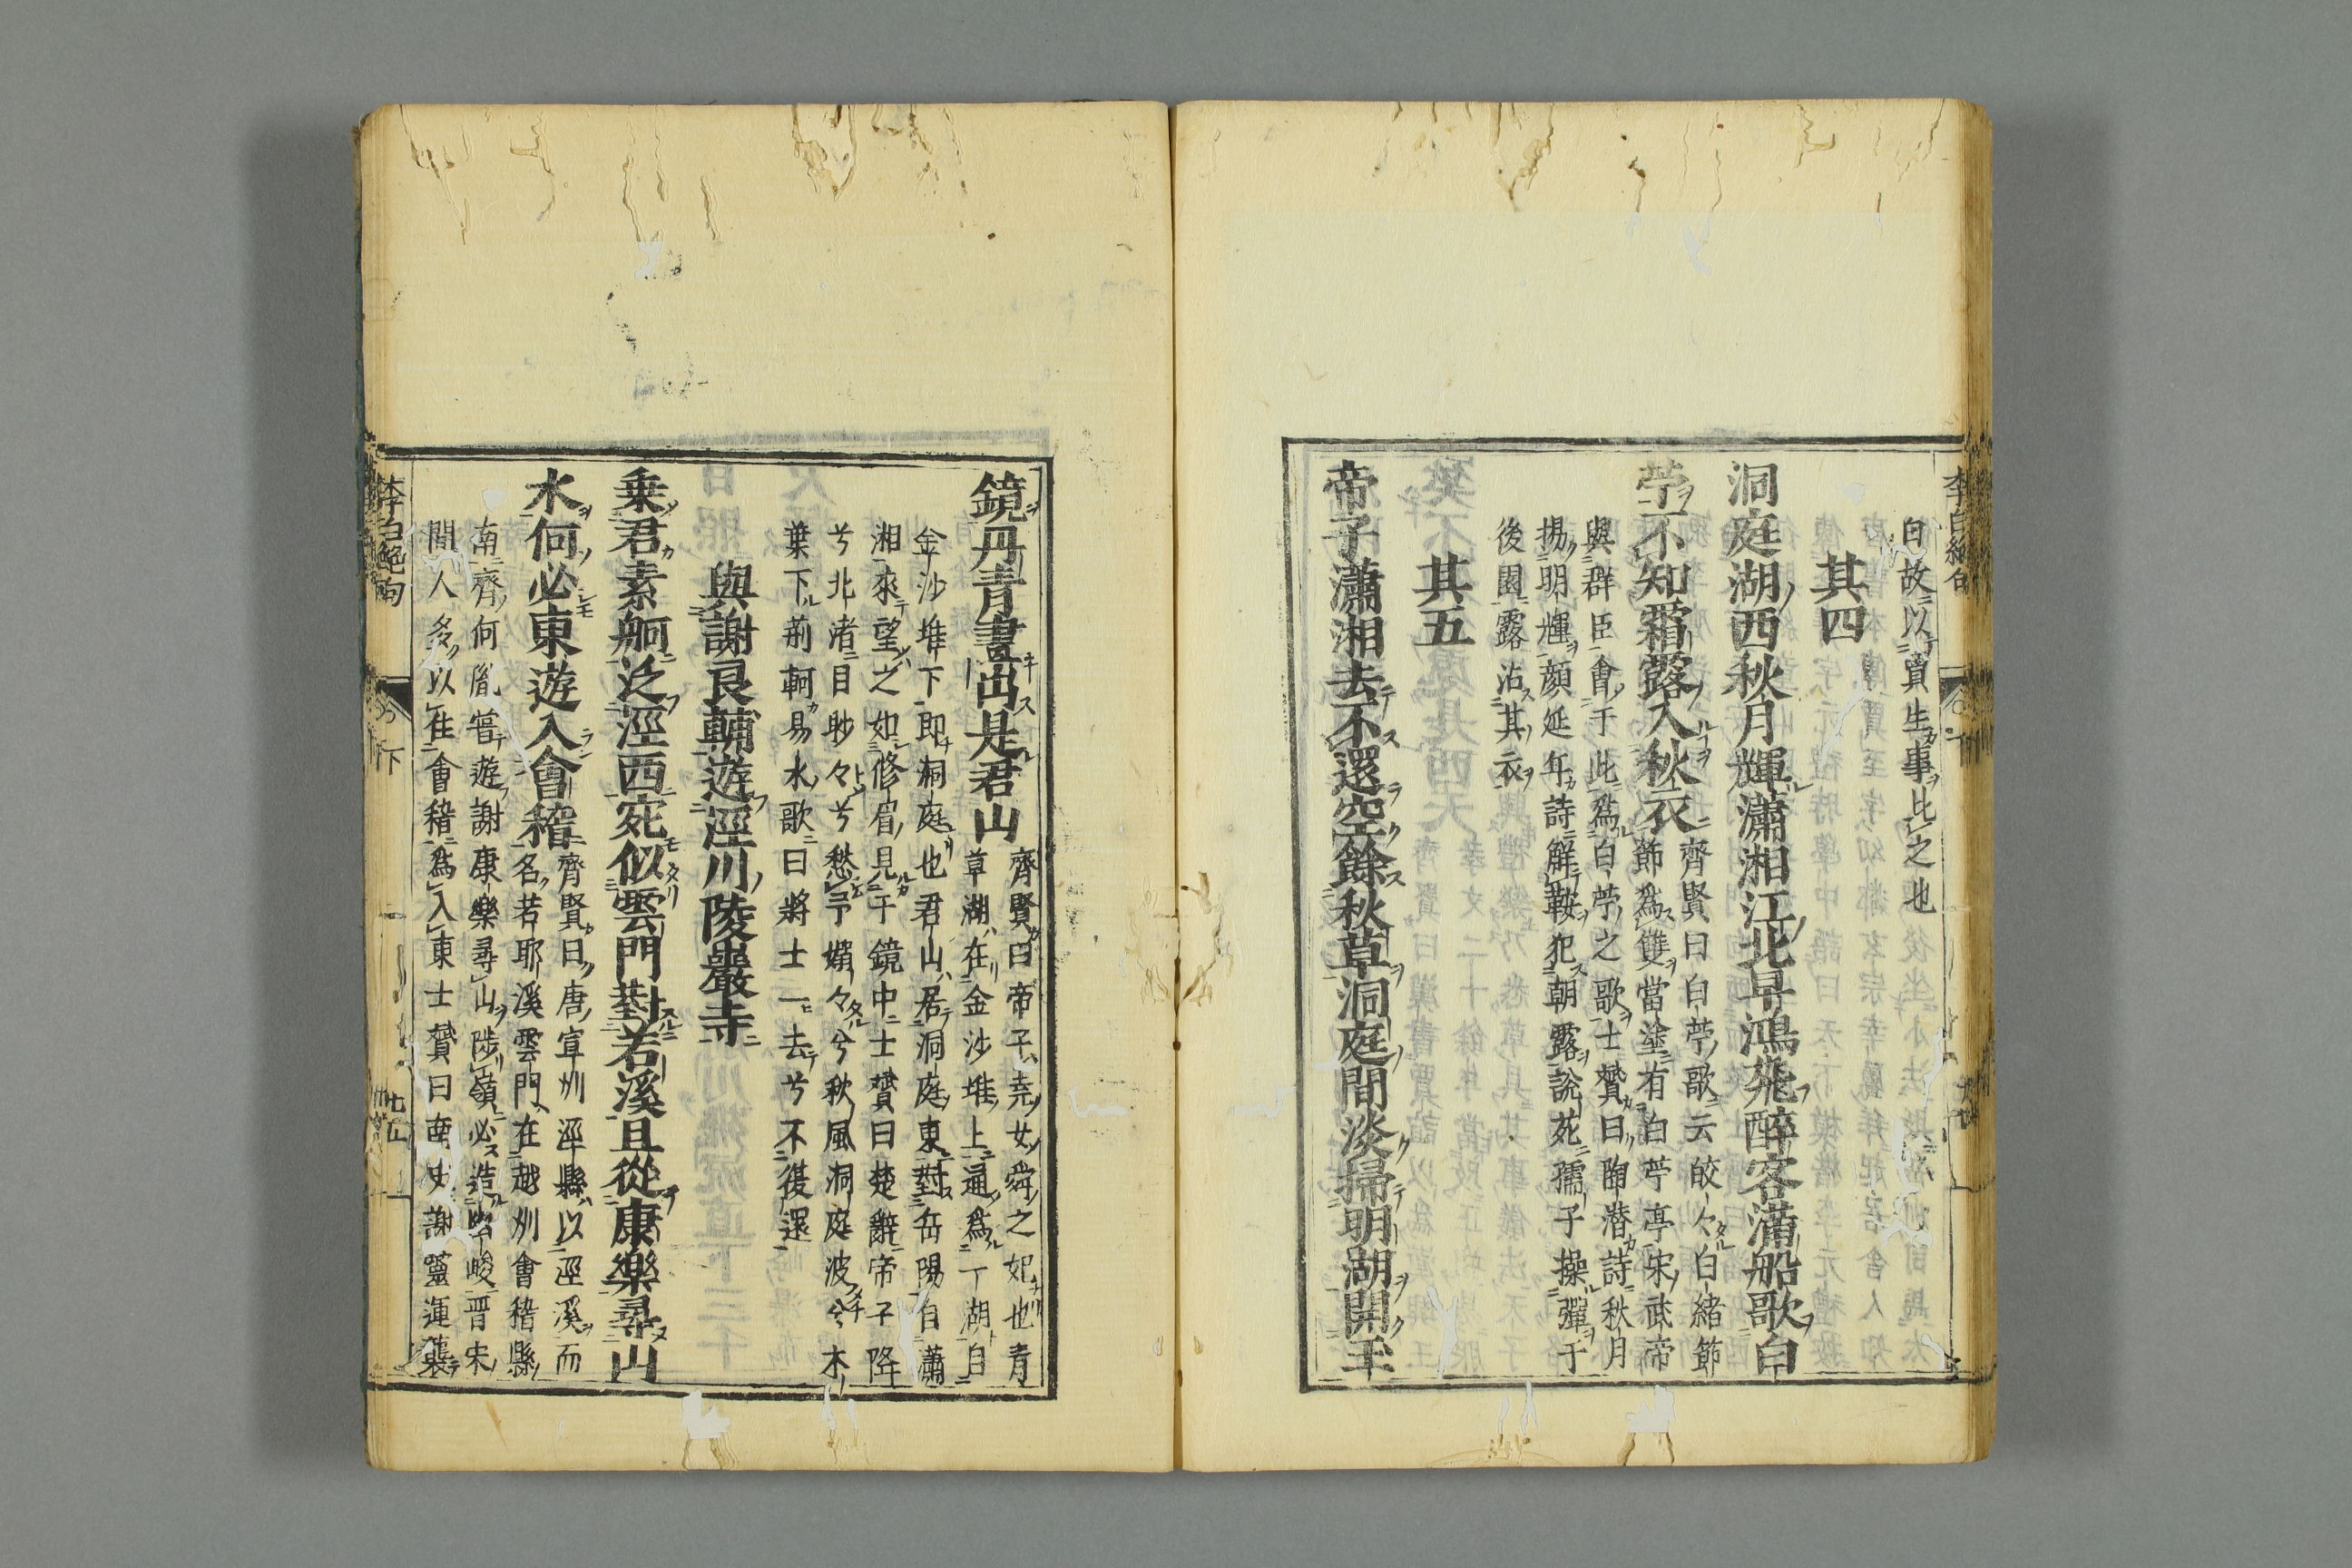 白故以賈生事比之也
其四
洞庭湖西秋月輝瀟湘江北早鴻飛醉客滿船歌白
苧不知霜露入秋衣
齊賢曰白苧歌云皎々白緒節
節爲雙當塗有白苧亭宋武帝
與群臣會于此爲白苧之歌士贇曰陶潜詩秋月
揚明輝顔延年詩解鞍犯朝露說苑孺子操彈于
後園露沾其衣
其五
帝子瀟湘去不還空餘秋草洞庭間淡掃明湖開玉
李白絶句
鏡丹青畫出是君山
齊賢曰帝子堯女舜之妃也青
草湖在金沙堆上通爲一湖自
金沙堆下即洞庭也君山居洞庭東對岳陽自瀟
湘來望之如修眉見于鏡中士贇曰楚辭帝子降
兮北渚目眇々兮愁予嫋々兮秋風洞庭波兮木
葉下荊軻易水歌曰將士一去兮不復還
與謝良輔遊涇川陵巖寺
乗君素舸泛涇西宛似雲門對若溪且從康樂尋山
水何必東遊入會稽
齊賢曰唐宣州涇縣以涇溪而
名若耶溪雲門在越州會稽縣
南齊何胤嘗遊謝康樂尋山陟嶺必造幽峻晋宋
間人多以徃會稽爲入東士贇曰南史謝靈運襲
李白絶句
下